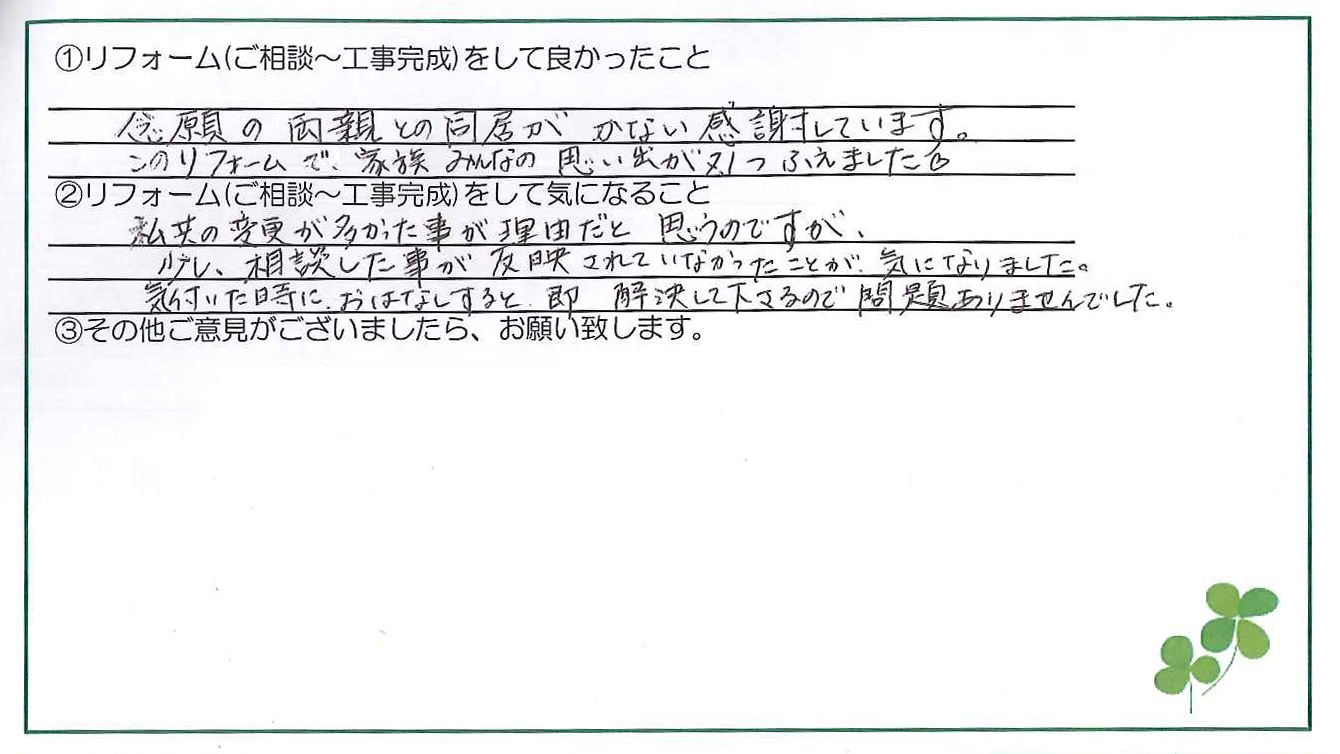 ①リフォーム(ご相談～工事完成)をして良かったこと
念願の両親との同居がかない感謝しています。
このリフォームで、家族みんなの思い出が又1つふえました
②リフォーム(ご相談～工事完成)をして気になること
私共の変更が多かった事が理由だと思うのですが、
少し、相談した事が反映されていなかったことが、気になりました。
気付いた時に、おはなしすると、即 解決して下さるので問題ありませんでした。
③その他ご意見がございましたら、お願い致します。